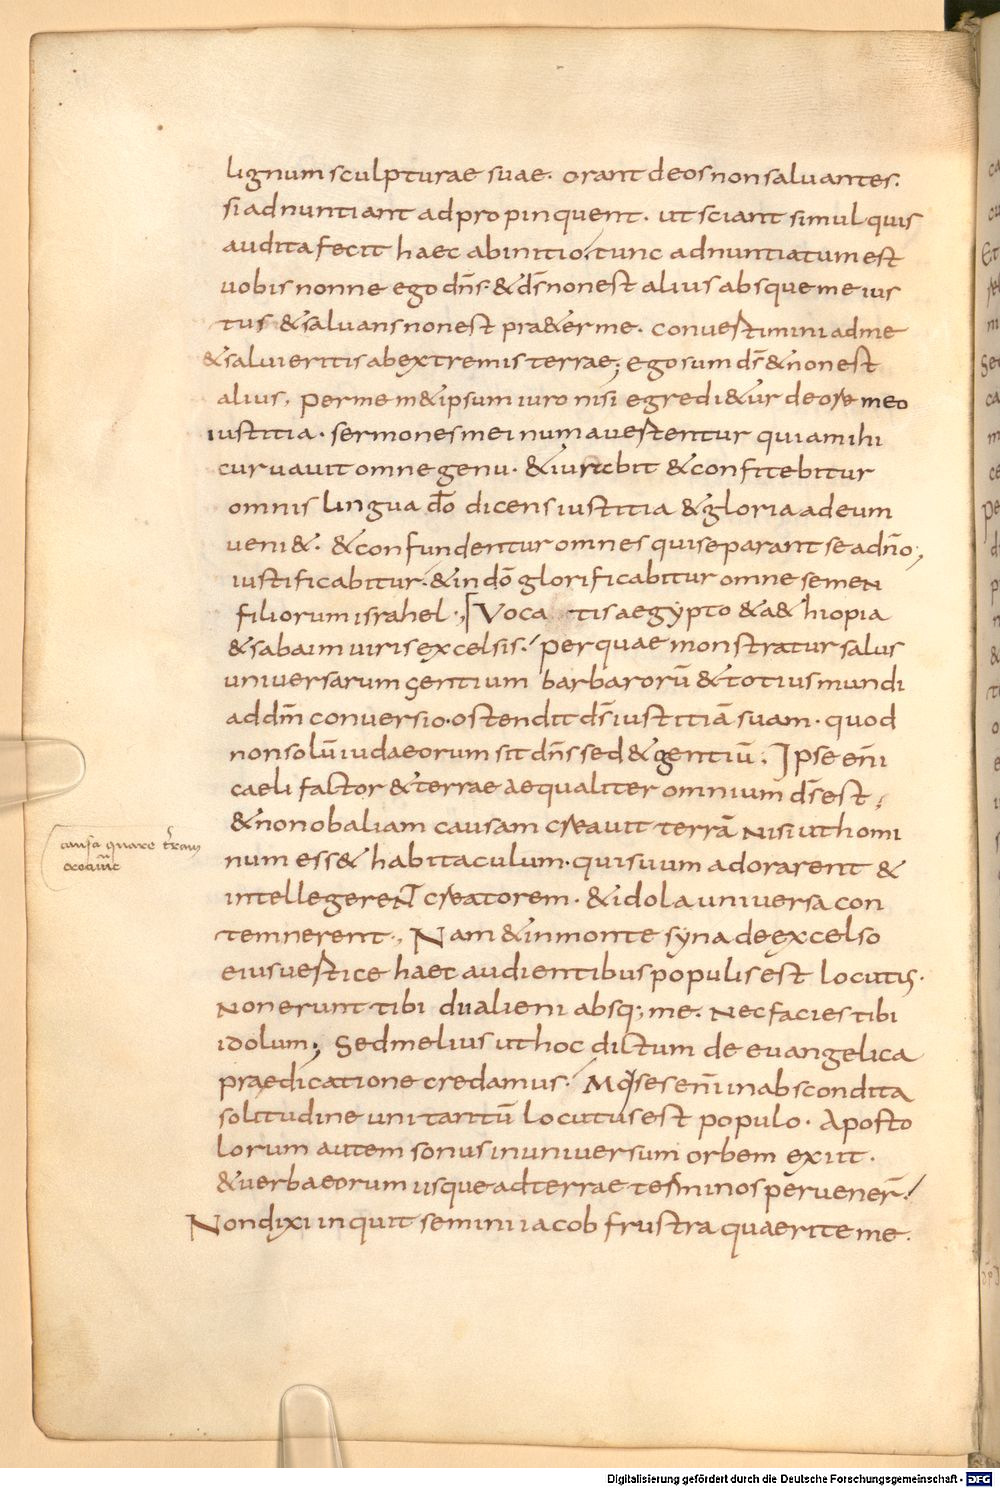 lignum sculpturae suae. orant deos non saluantes.
si adnuntiant ad pro pinquent. ut sciant simul quis
audita fecit haec abinitio; tunc adnuntiatum est
uobis nonne ego dn̄s. & ds̄ non est alius absque me ius
tus & saluans non est pra&er me. conuestimini ad me
& salui eritis ab extremis terrae; ego sum ds̄ & non est
alius, per me m&ipsum iuro nisi egredi&ur de ore meo
iustitia. sermones mei num auestentur quia mihi
curuauit omne genu. & iurabit & confitebitur
omnis lingua dō dicens iustitia & gloria a deum
ueni&. & confundentur omnes qui separant se a dn̄o;
iustificabitur. & in dō glorificabitur omne semen
filiorum israhel., Voca tis aegypto & a& hiopia
& sabaim uiris excelsis. per quae monstratur salus
uniuersarum gentium barbarorū & totius mundi
ad dm̄ conuersio. ostendit ds̄ iustitiā suam. quod
non solū iudaeorum sit dn̄s sed & gentiū. Ipse en̄i
caeli factor & terrae aequaliter omnium ds̄ est;
& non ob aliam causam creauit terrā nisi ut homi
num ess& habitaculum. qui suum adorarent &
intellegerent creatorem. & idola uniuersa con
temnerent., Nam & in monte syna de excelso
eius uestice haec audientibus populis est locutis.
Non erunt tibi dii alieni absq; me. Nec facies tibi
idolum; Sed melius ut hoc dictum de euangelica
praedicatione credamus. Moses en̄i in abscondita
solitudine uni tantū locutus est populo. Aposto
lorum autem sonus in uniuersum orbem exiit.
& uerba eorum usque ad terrae terminos peruener̄.
Non dixi inquit semini iacob frustra quaerite me.
causa quare
Digitalisierung gefördert durch die Deutsche Forschungsgemeinschaft - DFG